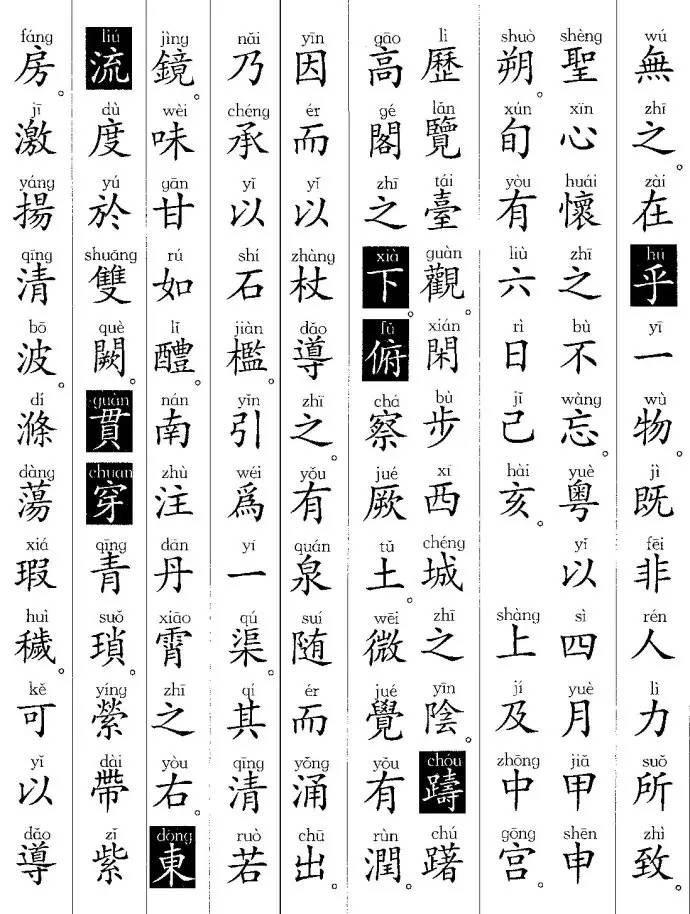 wú zhī zài hú yī wù jì fēi rén lì suǒ zhì
無之。在乎一物。既非人力所致。
shèng xīn huái zhī bù wàng yuè yǐ sì yuè jiǎ shēn
聖心懷之不忘。粵以四月甲申
shuò xún yòu liù rì jǐ hài shàng jí zhōng gōng
朔。旬有六日己亥。上及中宮。
lì lǎn tái guàn xián bù xī chéng zhī yīn chóu chú
歷覽臺觀。閑步西城之陰。躊躇
gāo gé zhī xià fǔ chá jué tǔ wēi jué yǒu rùn
高閣之下。俯察厥土。微覺有潤。
yīn ér yǐ zhàng dǎo zhī yǒu quán suí ér yǒng chū
因而以杖導之。有泉随而涌出。
nǎi chéng yǐ shí jiàn yǐn wéi yí qú qí qīng ruò
乃承以石檻。引爲一渠。其清若
jìng wèi gān rú lǐ nán zhù dān xiāo zhī yòu dōng
鏡。味甘如醴。南注丹霄之右。東
liú dù yú shuāng què guàn chuān qīng suǒ yíng dài zǐ
流度於雙闕。貫穿青瑣。縈帶紫
fáng jī yáng qīng bō dí dàng xiá huì kě yǐ dǎo
房。激揚清波。滌蕩瑕穢。可以導